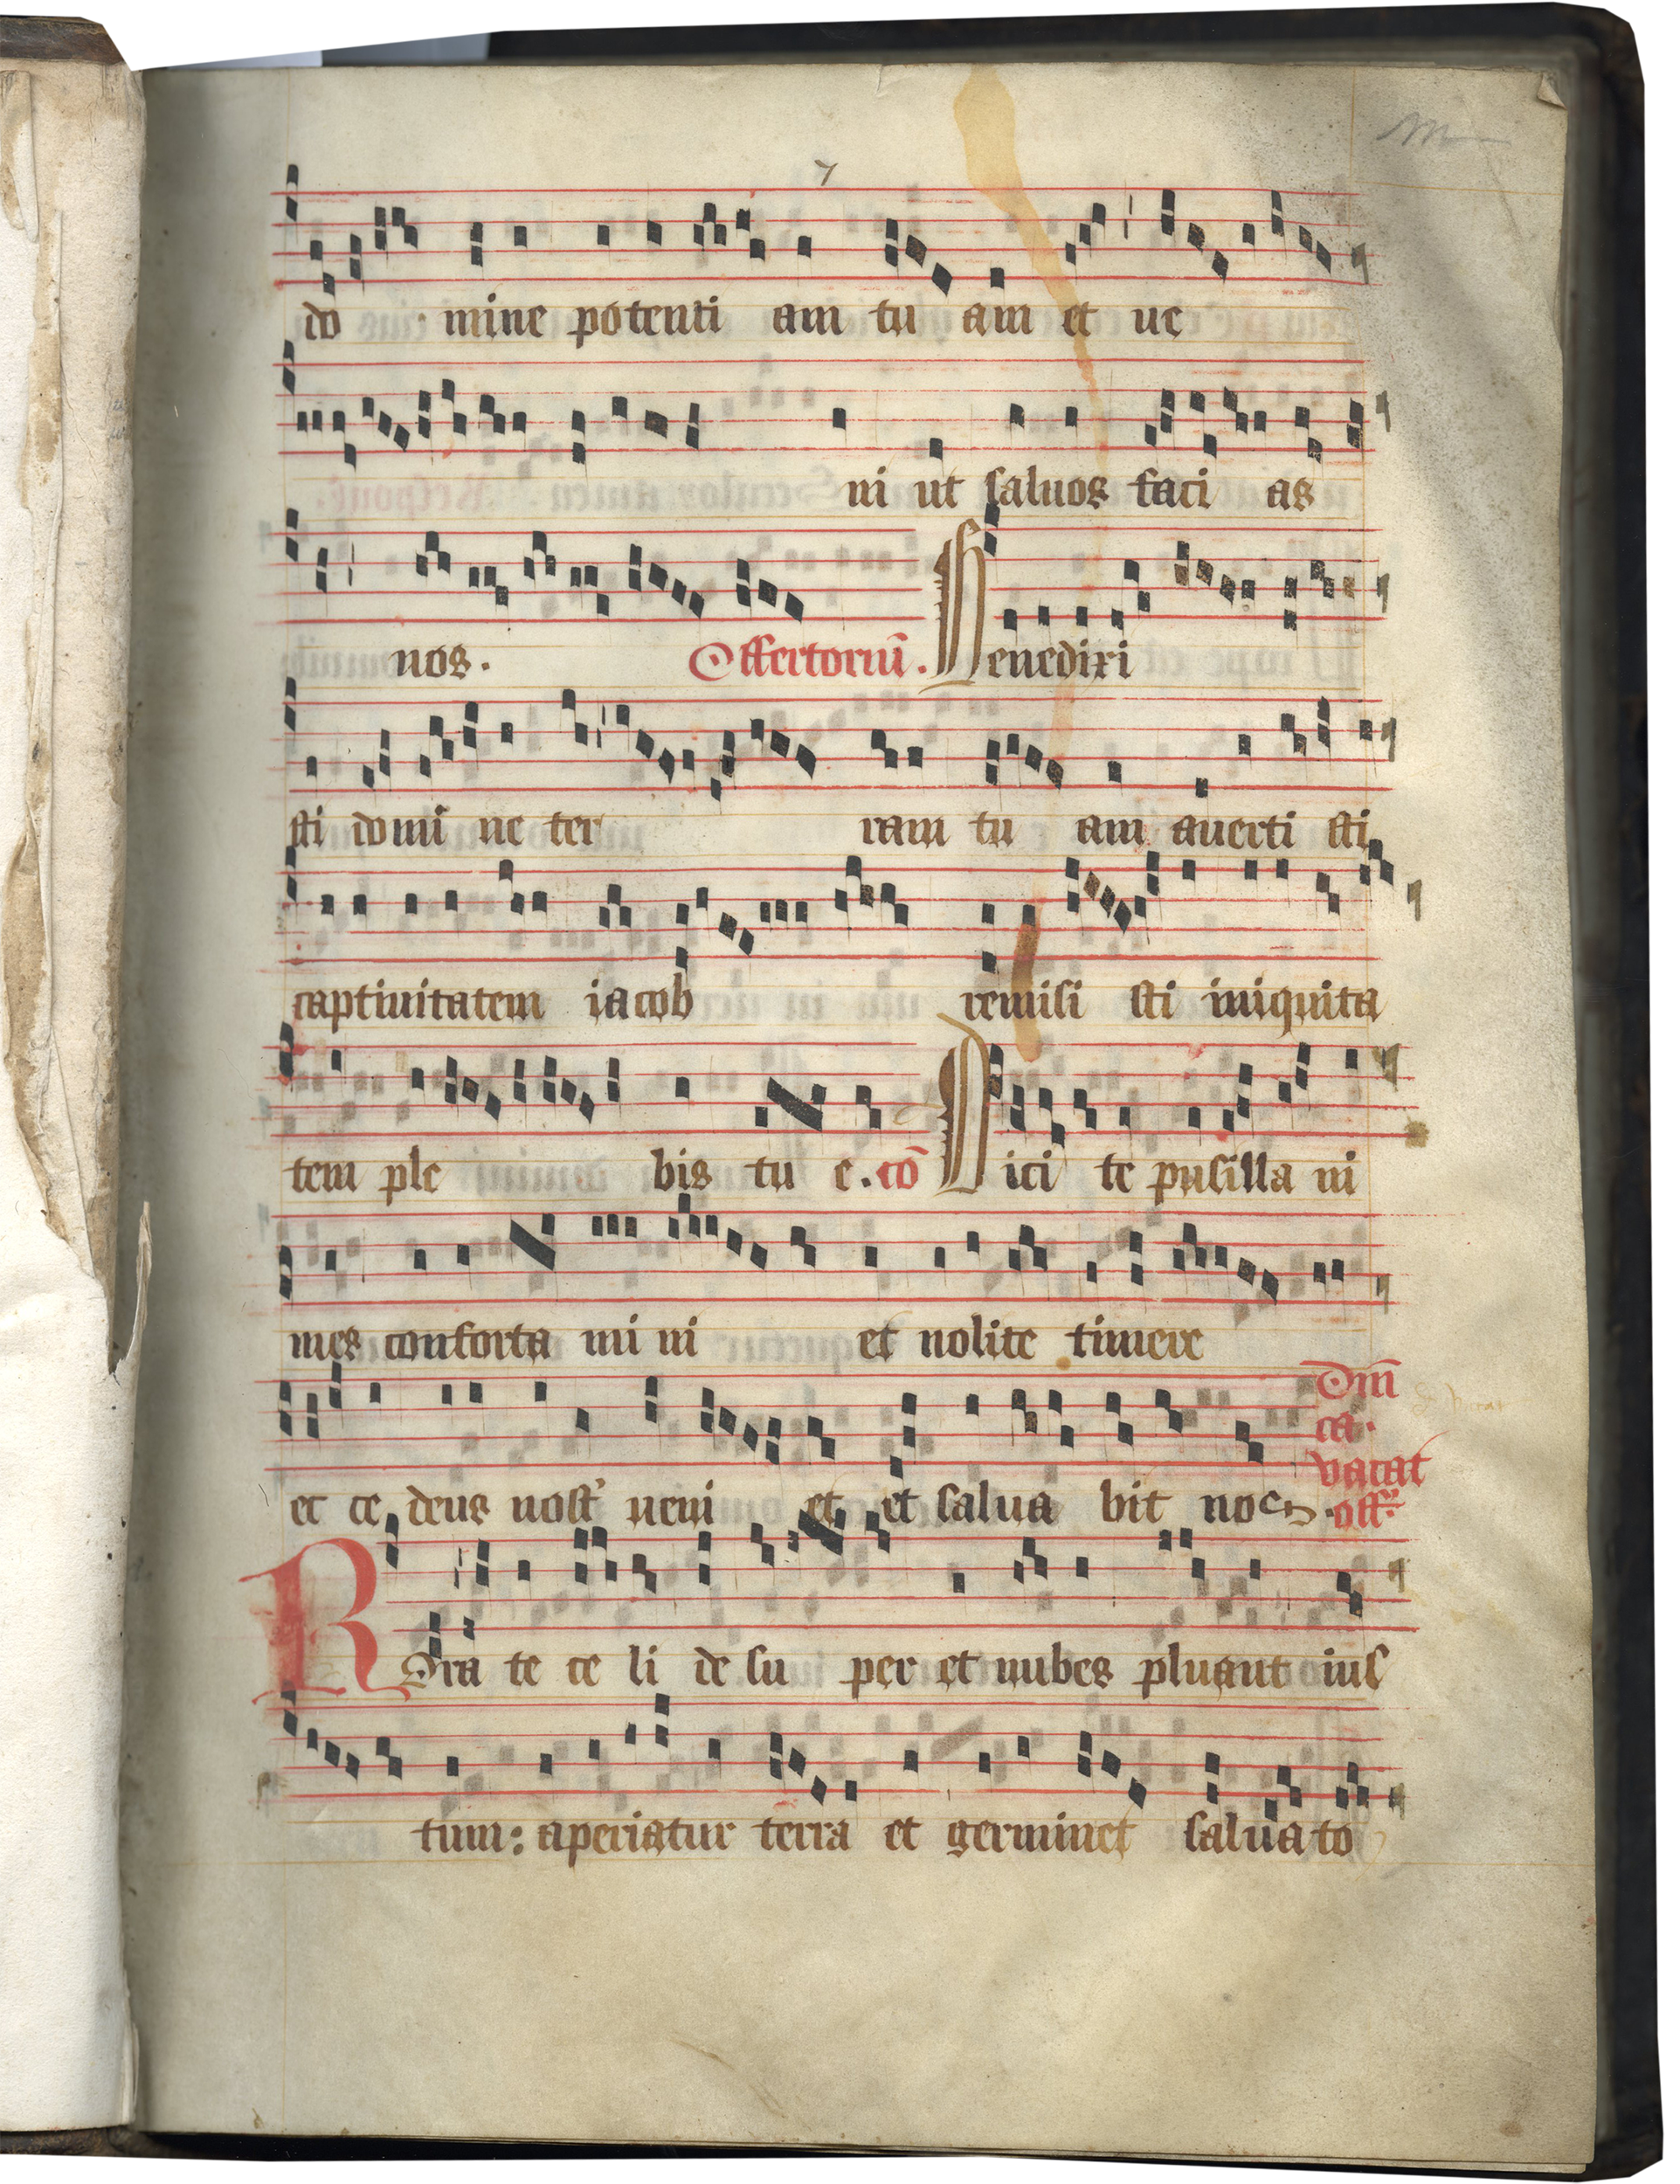 7
do mine potenti am tu am et ue
ni ut saluos faci as
nos. Offertoriū. Benedixi
sti domi ne ter ram tu am auerti sti
captiuitatem iacob remisi sti iniquita
tem ple bis tu e. cō Dici te pusilla ni
mes conforta mi ni et nolite timere
et ce deus nost' ueni et et salua bit nos.
Dm̄
ca.
vacat
off.
Rora te ce li de su per et nubes pluant ius
tum: aperiatur terra et germinet saluato